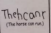 Thehcanr
(The horse can run.)